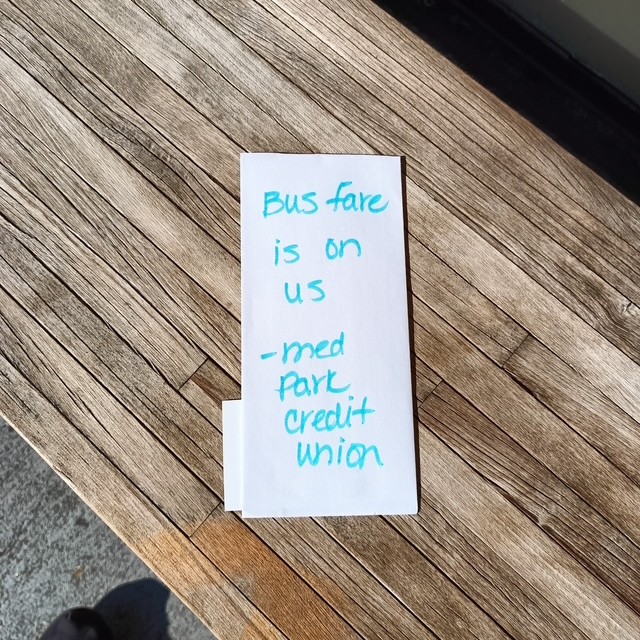 Bus fare
is on
us
-med
Park
credit
union